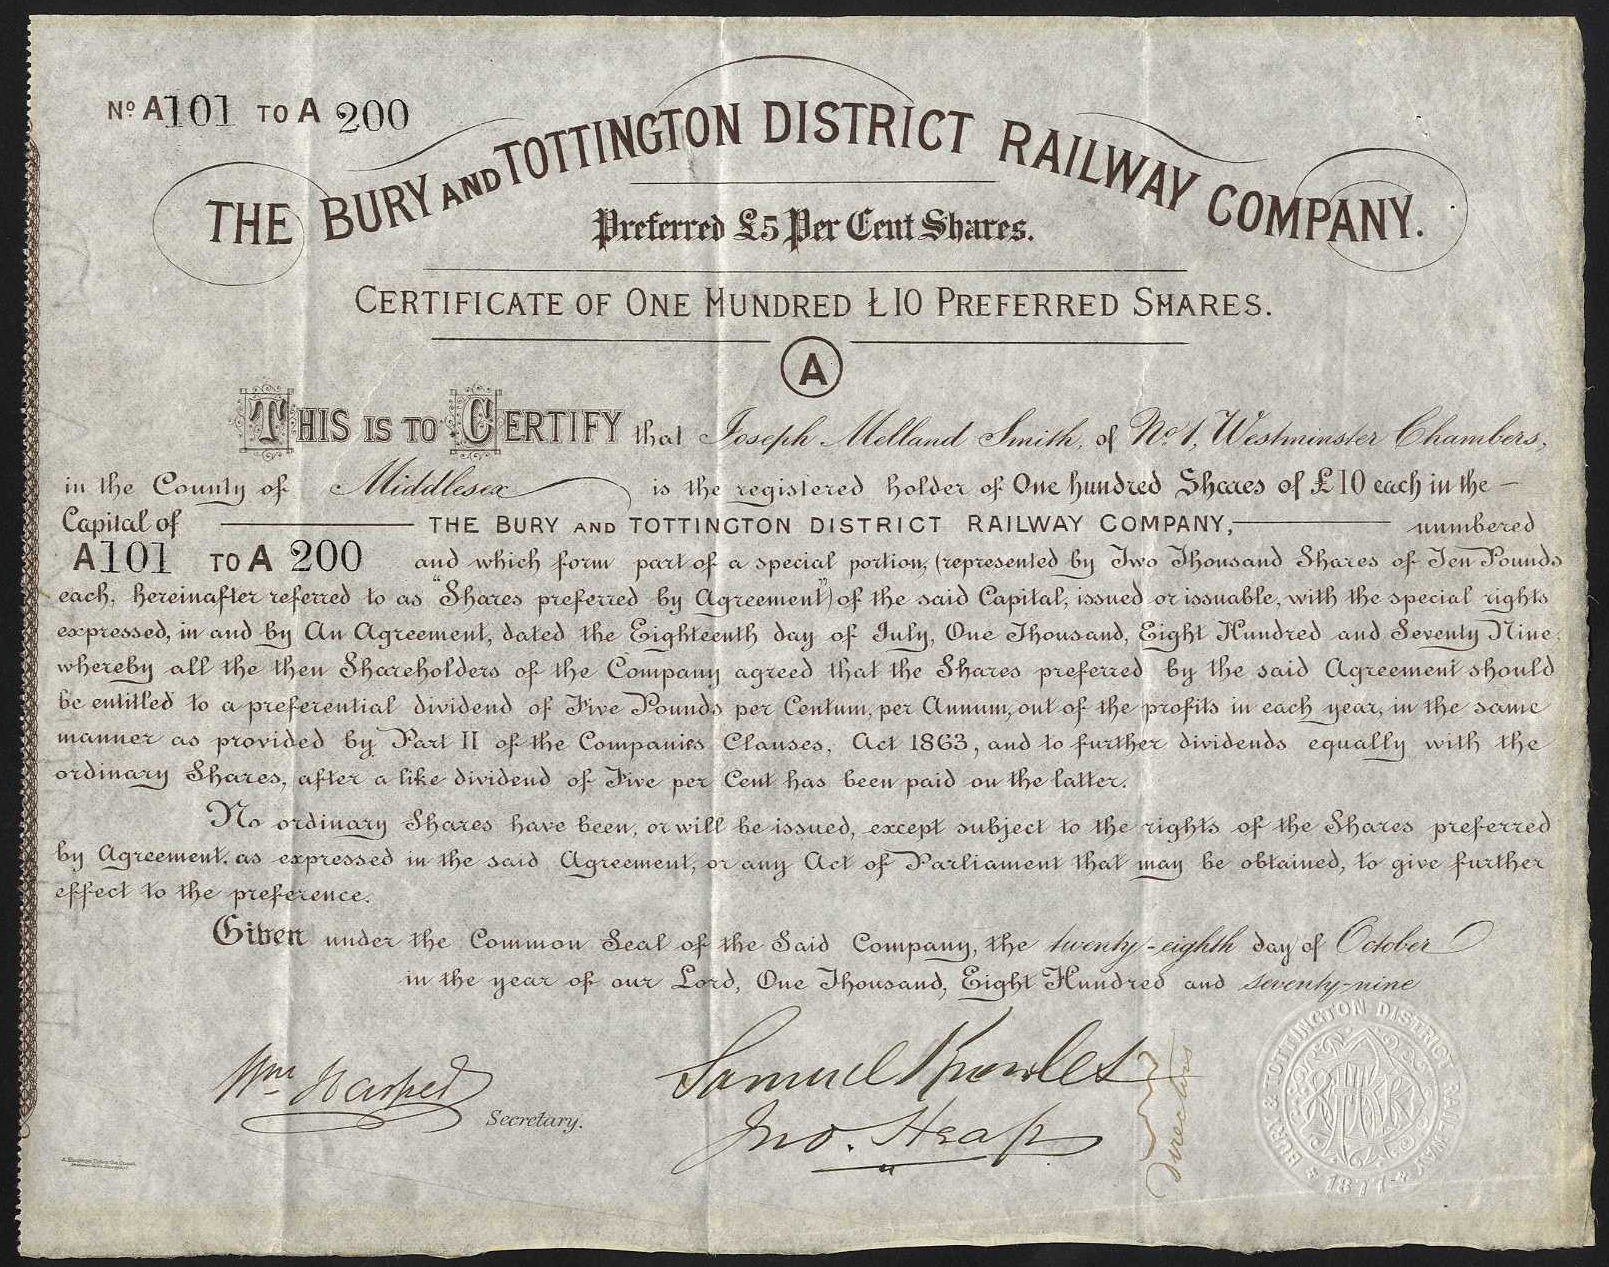 Nº A101 TO A 200
THE BURY AND TOTTINGTON DISTRICT RAILWAY COMPANY.
Preferred £5 Per Cent Shares.
CERTIFICATE OF ONE HUNDRED £10 PREFERRED SHARES.
A
THIS IS TO CERTIFY that Joseph Melland Smith, of No 1, Westminster Chambers,
in the County of Middlesex is the registered holder of One hundred Shares of £10 each in the
Capital of THE BURY AND TOTTINGTON DISTRICT RAILWAY COMPANY, numbered
A101 TO A 200 and which form part of a special portion, (represented by Two Thousand Shares of Ten Pounds
each, hereinafter referred to as "Shares preferred by Agreement") of the said Capital, issued or issuable, with the special rights
expressed, in and by An Agreement, dated the Eighteenth day of July, One Thousand, Eight Hundred and Seventy Nine,
whereby all the then Shareholders of the Company agreed that the Shares preferred by the said Agreement should
be entitled to a preferential dividend of Five Pounds per Centum, per Annum, out of the profits in each year, in the same
manner as provided by Part II of the Companies Clauses, Act 1863, and to further dividends equally with the
ordinary Shares, after a like dividend of Five per Cent has been paid on the latter.
No ordinary Shares have been, or will be issued, except subject to the rights of the Shares preferred
by Agreement. as expressed in the said Agreement, or any Act of Parliament that may be obtained, to give further
effect to the preference.
Given under the Common Seal of the Said Company, the twenty-eighth day of October
in the year of our Lord, One Thousand, Eight Hundred and seventy-nine
Wm Harper
Secretary.
Samuel Knowles
Jno. Heap
Directors
BURY & TOTTINGTON DISTRICT RAILWAY
1877